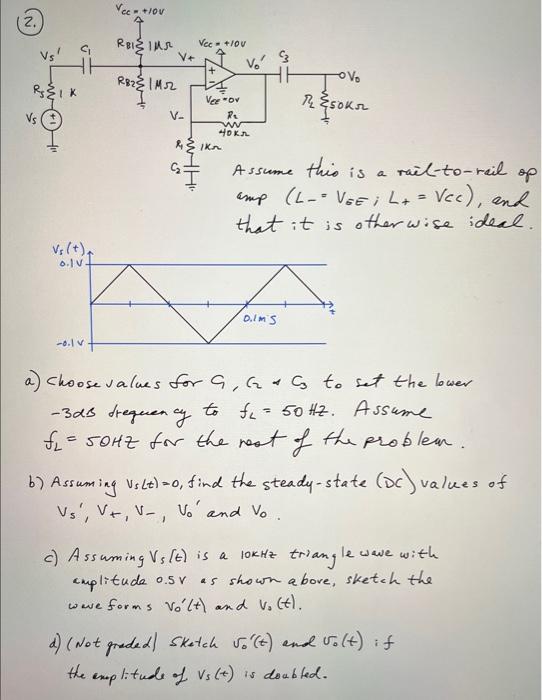 2.
Vcc = +10V
Vs'
C1
RB1
1MΩ
Vcc = +10V
V+
Vo'
C3
Vo
Rs
1K
RB2
1MΩ
+
-
VEE=0V
RL
50KΩ
Vs
V-
R2
40KΩ
R1
1KΩ
C2
Assume this is a rail-to-rail op
amp (L- = VEE; L+ = Vcc), and
that it is otherwise ideal.
Vs(t)
0.1V
t
0.1mS
-0.1V
a) Choose values for C1, C2 & C3 to set the lower
-3dB frequency to fL = 50HZ. Assume
fL = 50HZ for the rest of the problem.
b) Assuming Vs(t)=0, find the steady-state (DC) values of
Vs', V+, V-, Vo' and Vo.
c) Assuming Vs(t) is a 10KHz triangle wave with
amplitude 0.5V as shown above, sketch the
wave forms Vo'(t) and Vo(t).
d) (Not graded) Sketch vo'(t) and vo(t) if
the amplitude of Vs(t) is doubled.